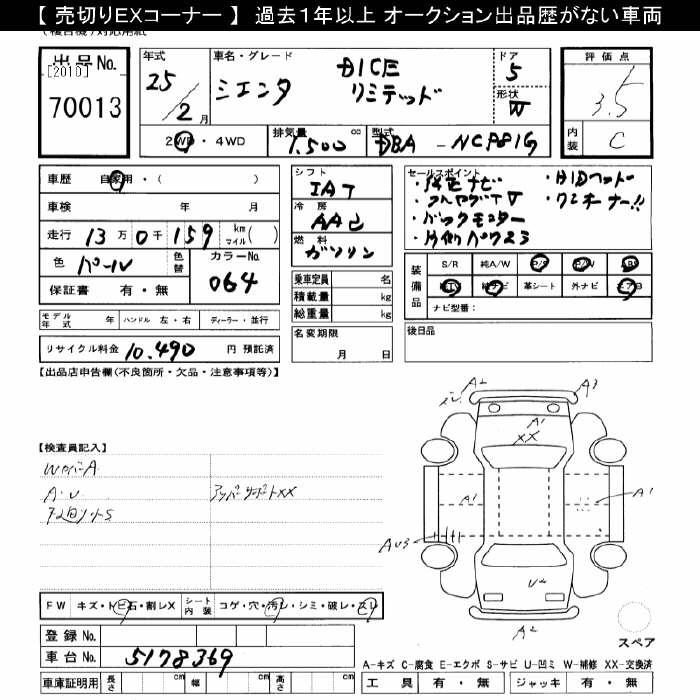 【 売切りEXコーナー 】 過去1年以上 オークション出品歴がない車両
出品No.
[2010]
70013
年式
25
2月
車名・グレード
シエンタ
DICE
リミテッド
ドア
5
形状
W
評価点
3.5
内装
C
2WD・4WD
排気量
1,500 cc
型式
DBA - NCP81G
車歴 自家用・( )
車検 年 月
走行 13万 0千 159 km(マイル)
色 パール 色替
カラーNo.
064
保証書 有・無
シフト
IAT
冷房
AAC
燃料
ガソリン
乗車定員 名
積載量 kg
総重量 kg
名変期限
月 日
セールスポイント
・純正ナビ
・フルセグTV
・バックモニター
・片側パワスラ
・HIDヘッド
・ワンオーナー!!
装備品
S/R 純A/W P/S P/W ABS
純TV 純ナビ 革シート 外ナビ エアB
ナビ型番:
後日品
モデル年式 年 ハンドル 左・右 ディーラー・並行
リサイクル料金 10,490 円 預託済
【出品店申告欄(不良箇所・欠品・注意事項等)】
【検査員記入】
WカバーA
A・U
アッパーサポートXX
下回りサビS
A2
A3
A1
XX
A1
A1
AU3
U2
A2
FW キズ・トビ石・割レX
シート内装 コゲ・穴・汚レ・シミ・破レ・スレ
登録No.
車台No. 5178369
車庫証明用 長さ cm 幅 cm 高さ cm
スペア
A-キズ C-腐食 E-エクボ S-サビ U-凹ミ W-補修 XX-交換済
工具 有・無 ジャッキ 有・無